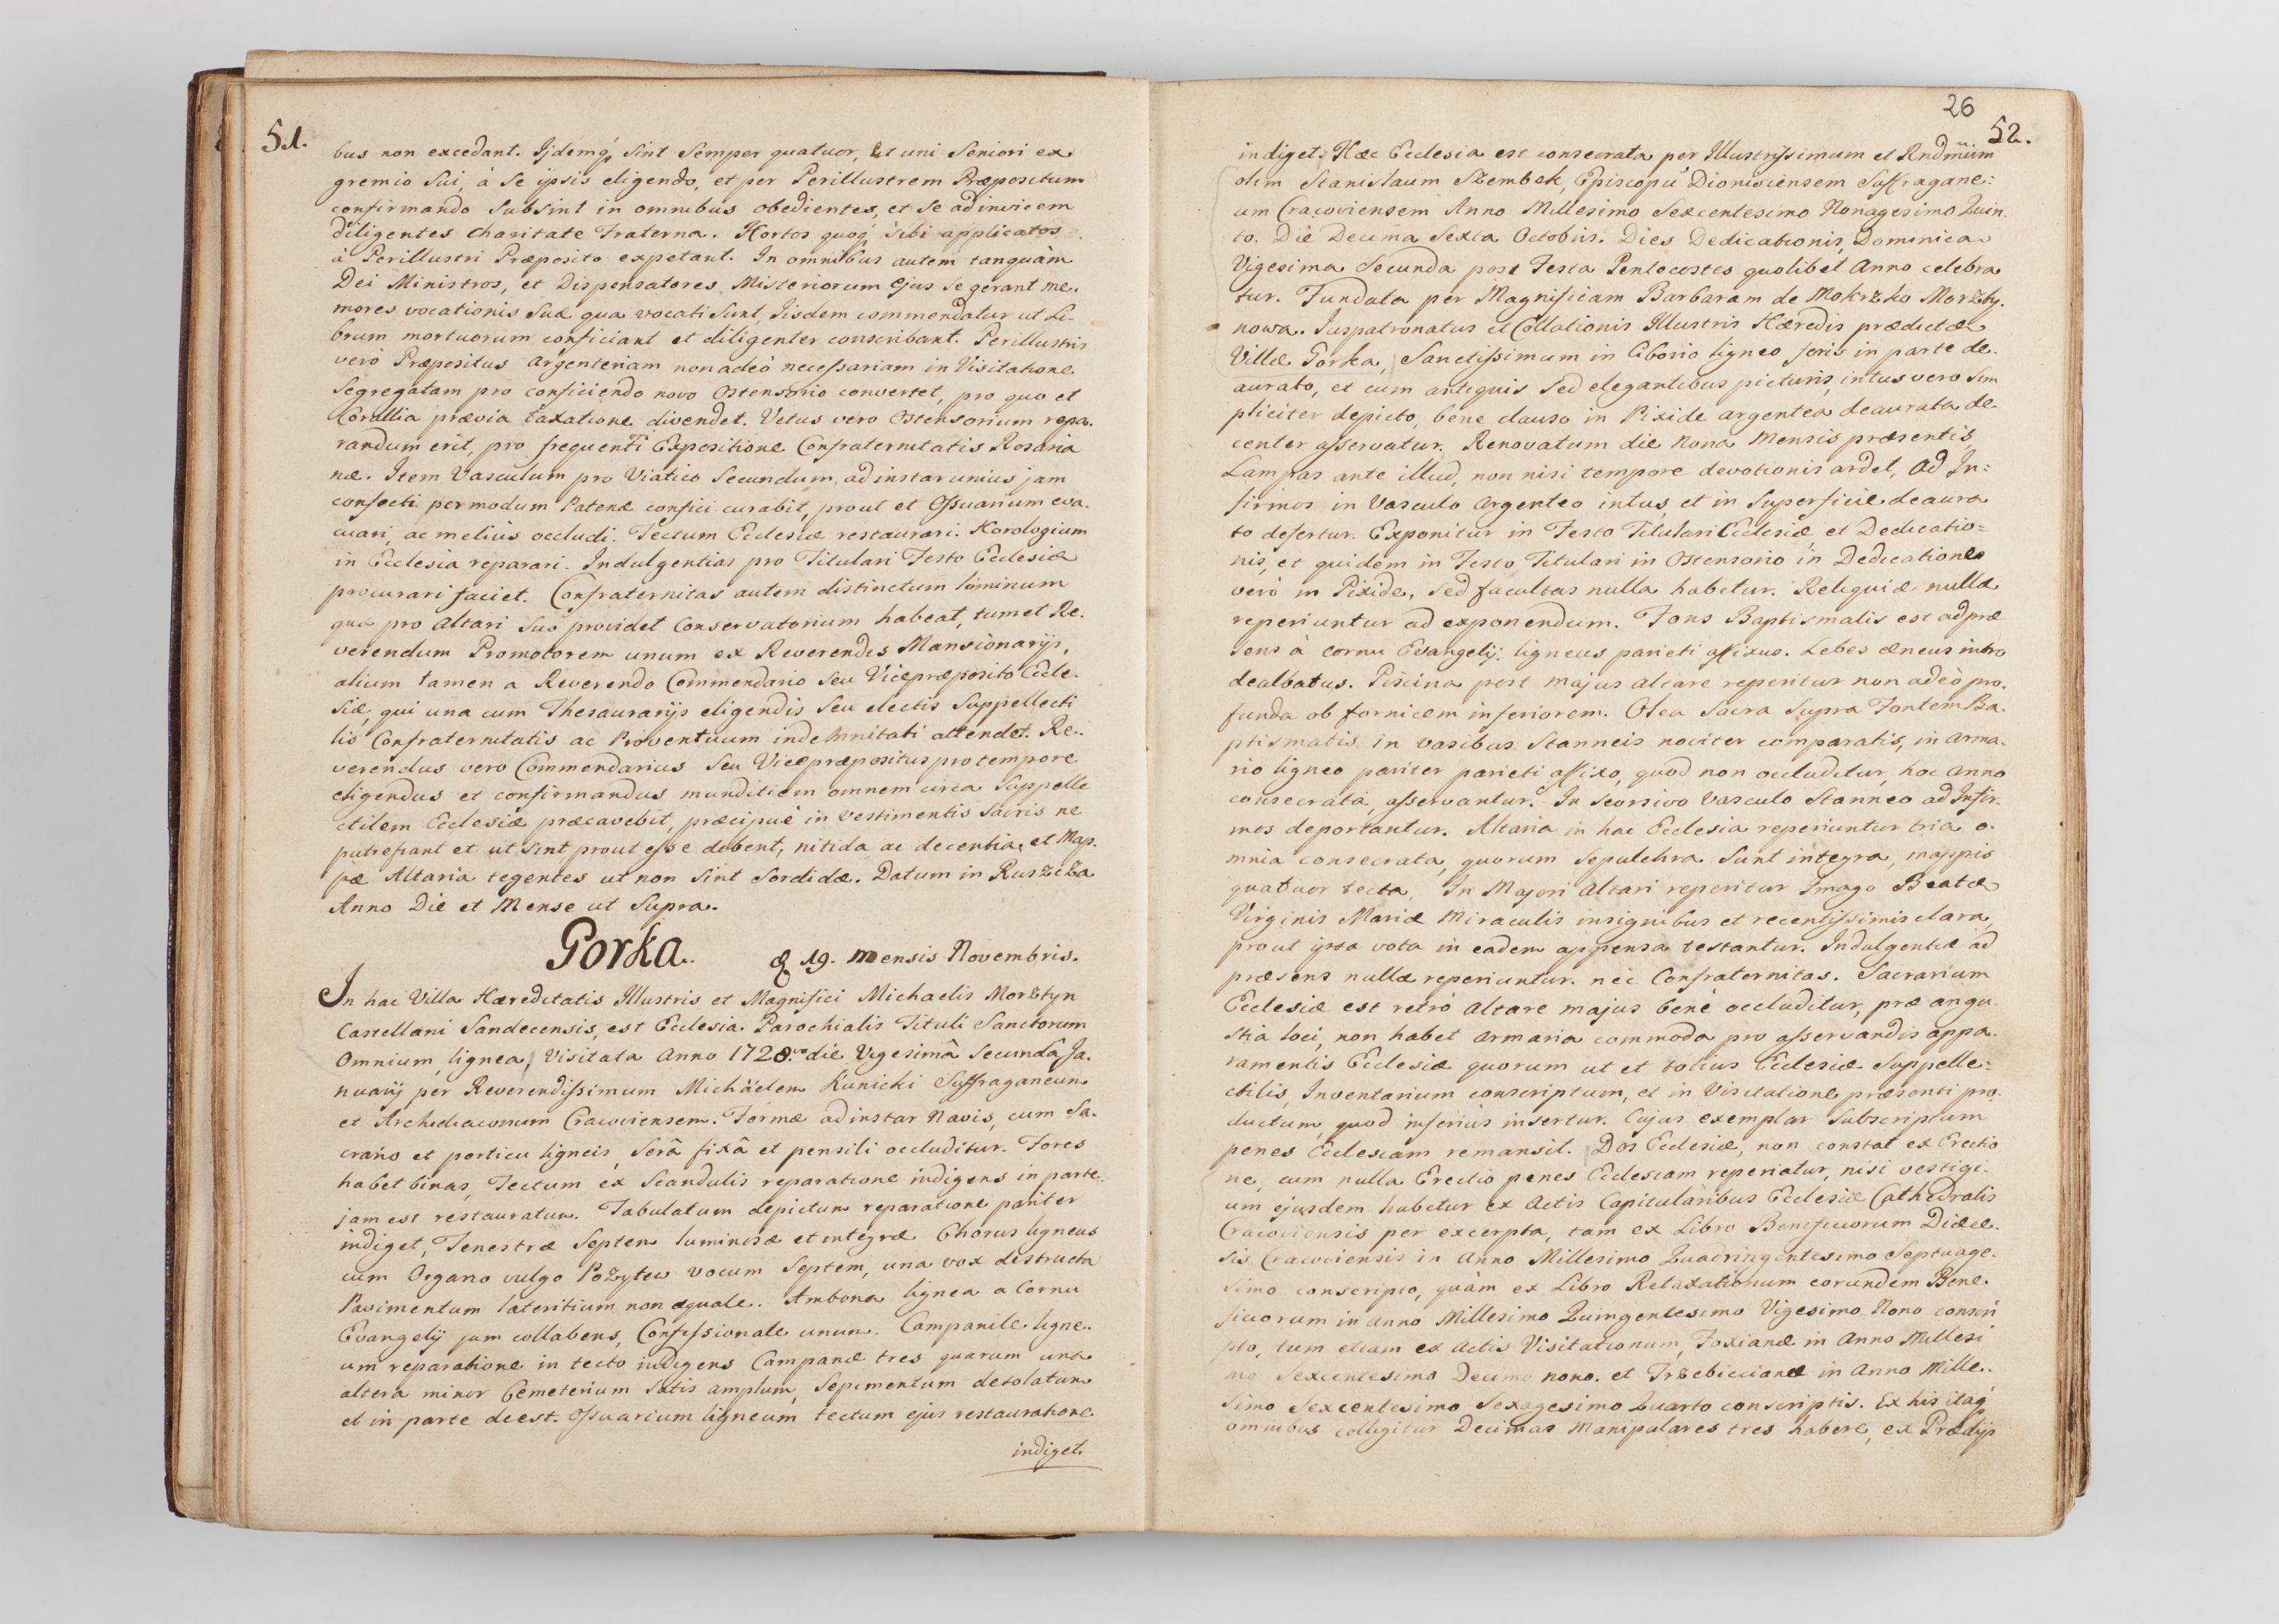 51.
bus non excedant. Ijdemq́ sint semper quatuor, Et uni Seniori ex
gremio sui, à se ipsis eligendo, et per Perillustrem Præpositum
confirmando subsint in omnibus obedientes, et se adinvicem
diligentes charitate Fraterna. Hortos quoq́ sibi applicatos
à Perillustri Præposito expetant. In omnibus autem tanquàm
Dei Ministros, et Dispensatores Misteriorum ejus se gerant me.
mores vocationis suæ qua vocati sunt, Iisdem commendatur ut Li.
brum mortuorum conficiant et diligenter conscribant. Perillustris
verò Præpositus argenteriam non adeò necessariam in Visitatione
Segregatam pro conficiendo novo Ostensorio convertet, pro quo et
Corallia prævia taxatione divendet. Vetus vero Ostensorium repa.
randum erit, pro frequenti Expositione Confraternitatis Rosaria
næ. Item Vasculum pro Viatico Secundum, ad instar unius jam
confecti per modum Patenæ confici curabit, prout et Ossuarium eva.
cuari, ac meliùs occludi. Tectum Ecclesiæ restaurari. Horologium
in Ecclesia reparari. Indulgentias pro Titulari Festo Ecclesiæ
procurari faciet. Confraternitas autem distinctum luminum
qua pro Altari suo providet Conservatorium habeat, tum et Re.
verendum Promotorem unum ex Reverendis Mansionarijs,
alium tamen a Reverendo Commendario seu Vicepræposito Eccle.
siæ, qui una cum Thesaurarijs eligendis seu electis Suppellecti
lis Confraternitatis ac Proventuum indemnitati attendet. Re.
verendus vero Commendarius seu Vicepræpositus pro tempore
eligendus et confirmandus munditiem omnem circa Suppelle
ctilem Ecclesiæ præcavebit, præcipuè in vestimentis sacris ne
putrefiant et ut sint prout esse debent, nitida ac decentia, et Map.
pæ Altaria tegentes ut non sint sordidæ. Datum in Ruszcza
Anno Die et Mense ut Supra.
Gorka. 19. Mensis Novembris.
In hac Villa Hæreditatis Illustris et Magnifici Michaelis Morsztyn
Castellani Sandecensis, est Ecclesia Parochialis Tituli Sanctorum
Omnium, lignea, Visitata Anno 1728.vo die Vigesimâ Secundâ Ja.
nuarij per Reverendissimum Michäelem Kunicki Suffraganeum
et Archidiaconum Cracoviensem. Formæ ad instar Navis, cum Sa.
crario et porticu ligneis, serâ fixâ et pensili occluditur. Fores
habet binas, Tectum ex Scandulis reparatione indigens in parte
jam est restauratum. Tabulatum depictum reparatione pariter
indiget, Fenestræ Septem luminosæ et integræ Chorus ligneus
cum Organo vulgo Pozytew vocum Septem, una vox destructa
Pavimentum lateritium non æquale. Ambona lignea a Cornu
Evangelij jam collabens, Confessionale unum. Campanile ligne.
um reparatione in tecto indigens Campanæ tres quarum una
altera minor Cemeterium satis amplum, Sepimentum desolatum
et in parte deest. Ossuarium ligneum tectum ejus restauratione
indiget.
26
52.
indiget. Hæc Ecclesia est consecrata per Illustrissimum et Rndmum
olim Stanislaum Szembek, Episcopū Dionisiensem Suffragane:
um Cracoviensem Anno Millesimo Sexcentesimo Nonagesimo Quin.
to. Die Decima Sexta Octobris. Dies Dedicationis, Dominica
Vigesima Secunda post Festa Pentecostes quolibet Anno celebra
tur. Fundata per Magnificam Barbaram de Mokrzko Morszty.
nowa. Juspatronatus et Collationis Illustris Hæredis prædictæ
Villæ Gorka, Sanctissimum in Ciborio ligneo foris in parte de.
aurato, et cum antiquis sed elegantibus picturis, intus vero sim
pliciter depicto, bene clauso in Pixide argentea deaurata de
center asservatur. Renovatum die Nona Mensis præsentis,
Lampas ante illud, non nisi tempore devotionis ardet, Ad In:
firmos in Vasculo argenteo intus, et in superficie deaura
to defertur. Exponitur in Festo Titulari Ecclesiæ, et Dedicatio:
nis, et quidem in Festo Titulari in Ostensorio in Dedicatione
verò in Pixide, sed facultas nulla habetur. Reliquiæ nullæ
reperiuntur ad exponendum. Fons Baptismalis est ad præ
sens à cornu Evangelij. ligneus parieti affixus. Lebes æneus intro
dealbatus. Piscina post majus altare reperitur non adeò pro.
funda ob fornicem inferiorem. Olea Sacra supra Fontem Ba.
ptismatis in vasibus Stanneis noviter comparatis, in arma.
rio ligneo pariter parieti affixo, quod non occluditur, hoc anno
consecrata, asservantur. In seorsivo Vasculo Stanneo ad Infir.
mos deportantur. Altaria in hac Ecclesia reperiuntur tria o.
mnia consecrata, quorum sepulchra sunt integra, mappis
quatuor tecta. In Majori Altari reperitur Imago Beatæ
Virginis Mariæ Miraculis insignibus et recentissimis clara,
prout ipsa vota in eadem appensa testantur. Indulgentiæ ad
præsens nullæ reperiuntur. nec Confraternitas. Sacrarium
Ecclesiæ est retrò altare majus benè occluditur, præ angu.
stia loci, non habet armaria commoda pro asservandis appa.
ramentis Ecclesiæ quorum ut et totius Ecclesiæ Suppelle:
ctilis, Inventarium conscriptum, et in Visitatione præsenti pro.
ductum, quod inferiùs insertur. Cujus exemplar subscriptum
penes Ecclesiam remansit. Dos Ecclesiæ, non constat ex Erectio
ne, cum nulla Erectio penes Ecclesiam reperiatur, nisi vestigi.
um ejusdem habetur ex Actis Capitularibus Ecclesiæ Cathedralis
Cracoviensis per excerpta, tam ex Libro Beneficiorum Diæce.
sis Cracoviensis in Anno Millesimo Quadringentesimo Septuage.
simo conscripto, quàm ex Libro Retaxationum eorundem Bene.
ficiorum in anno Millesimo Quingentesimo Vigesimo Nono conscri
pto, tum etiam ex Actis Visitationum, Foxianæ in Anno Millesi
mo Sexcentesimo Decimo nono. et Trzebiccianæ in Anno Mille.
simo Sexcentesimo Sexagesimo Quarto conscriptis. Ex his itaq́
omnibus colligitur Decimas Manipulares tres habere, ex Prædijs